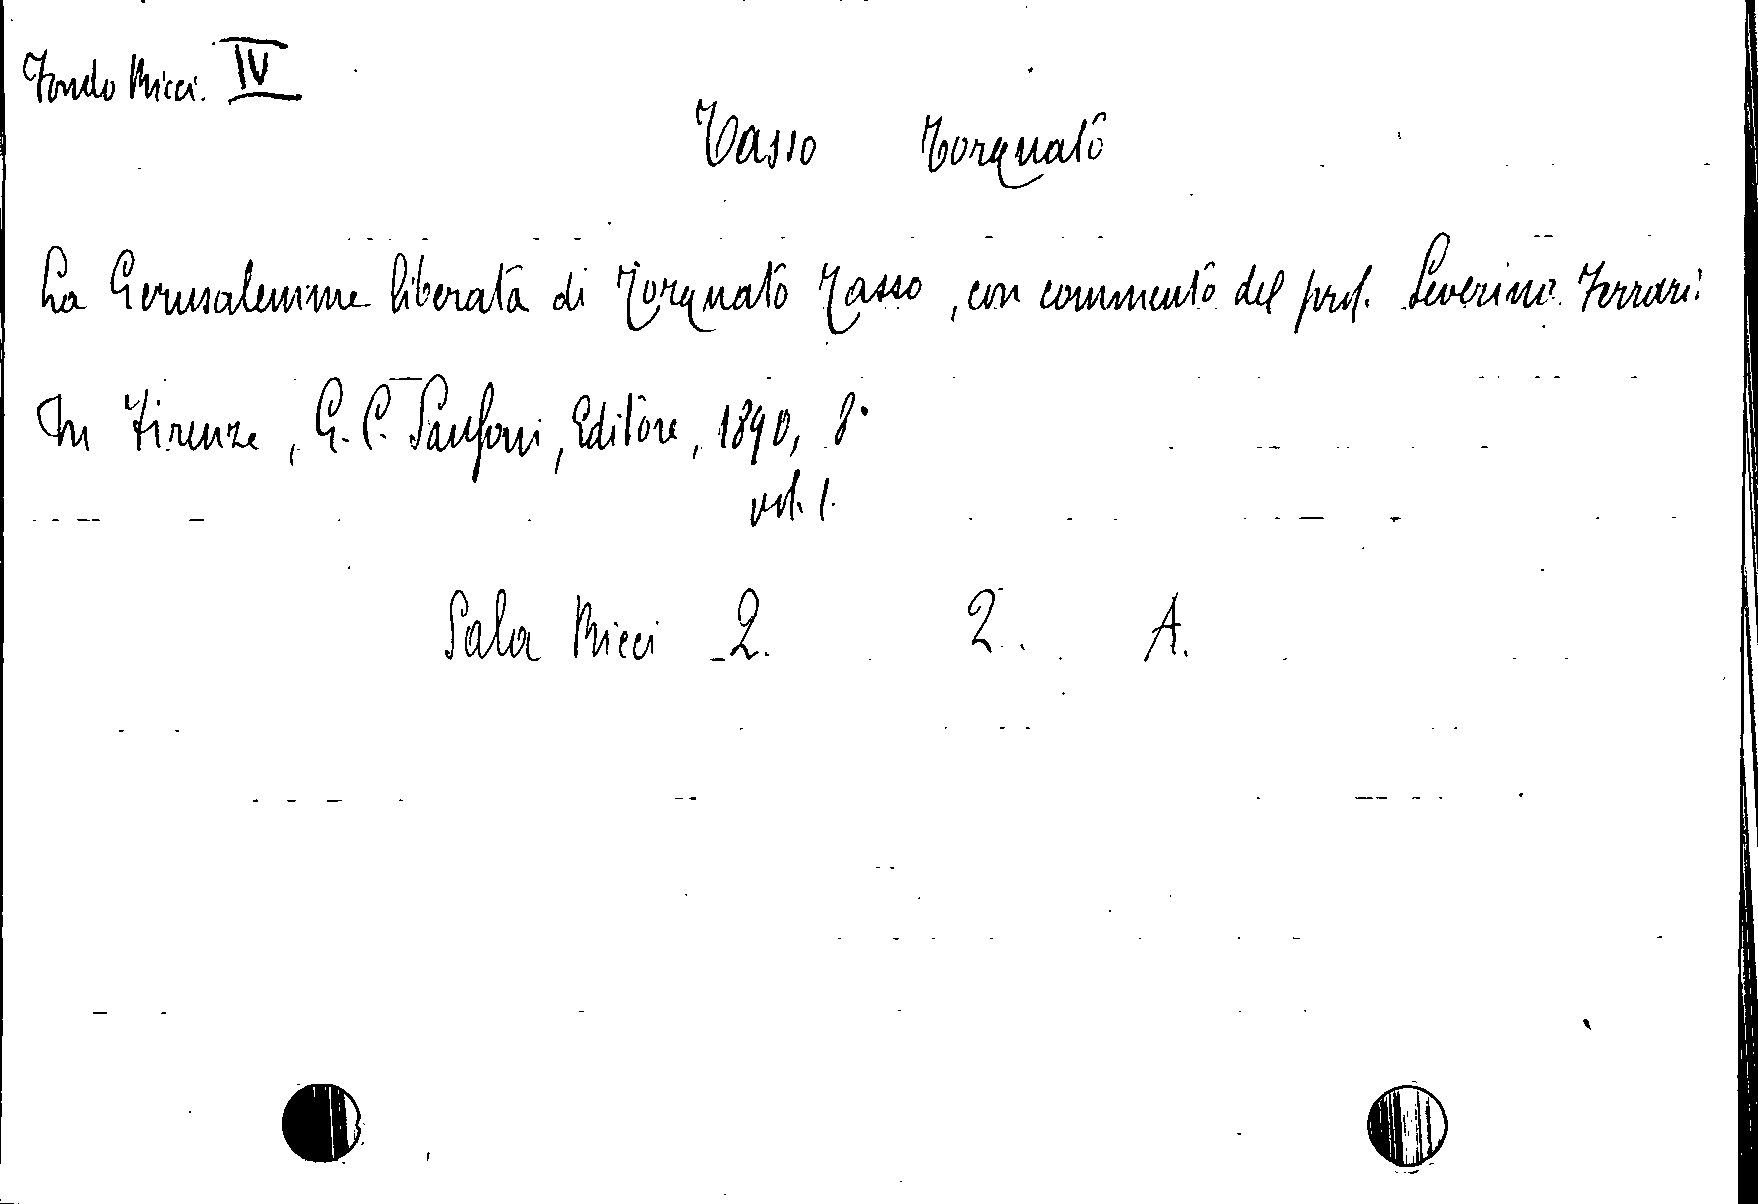 Fondo Ricci. IV
Tasso Torquato
La Gerusalemme liberata di Torquato Tasso, con commento del prof. Severino Ferrari.
In Firenze, G. C. Sansoni, Editore, 1890, 8°
vol. 1.
Sala Ricci 2. 2. A.